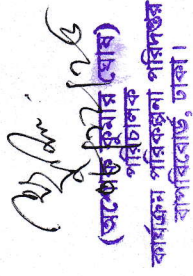 (অশোক কুমার ঘোষ)
পরিচালক
কার্যক্রম পরিকল্পনা পরিদপ্তর
বাপবিবোর্ড, ঢাকা।